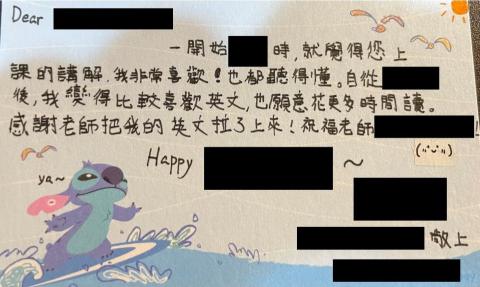 Dear
一開始 時，就覺得您上
課的講解，我非常喜歡！也都聽得懂。自從
後，我變得比較喜歡英文，也願意花更多時間讀。
感謝老師把我的英文拉了上來！祝福老師 ！
Happy ～
ya~
敬上